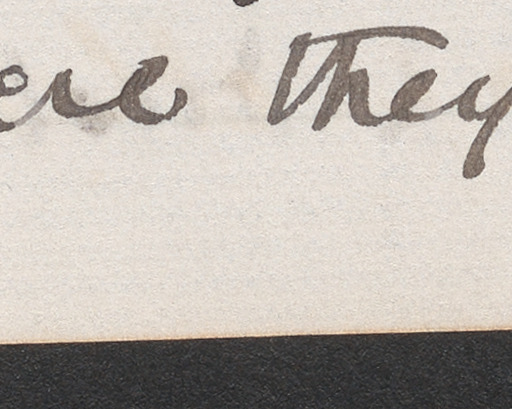 ere they